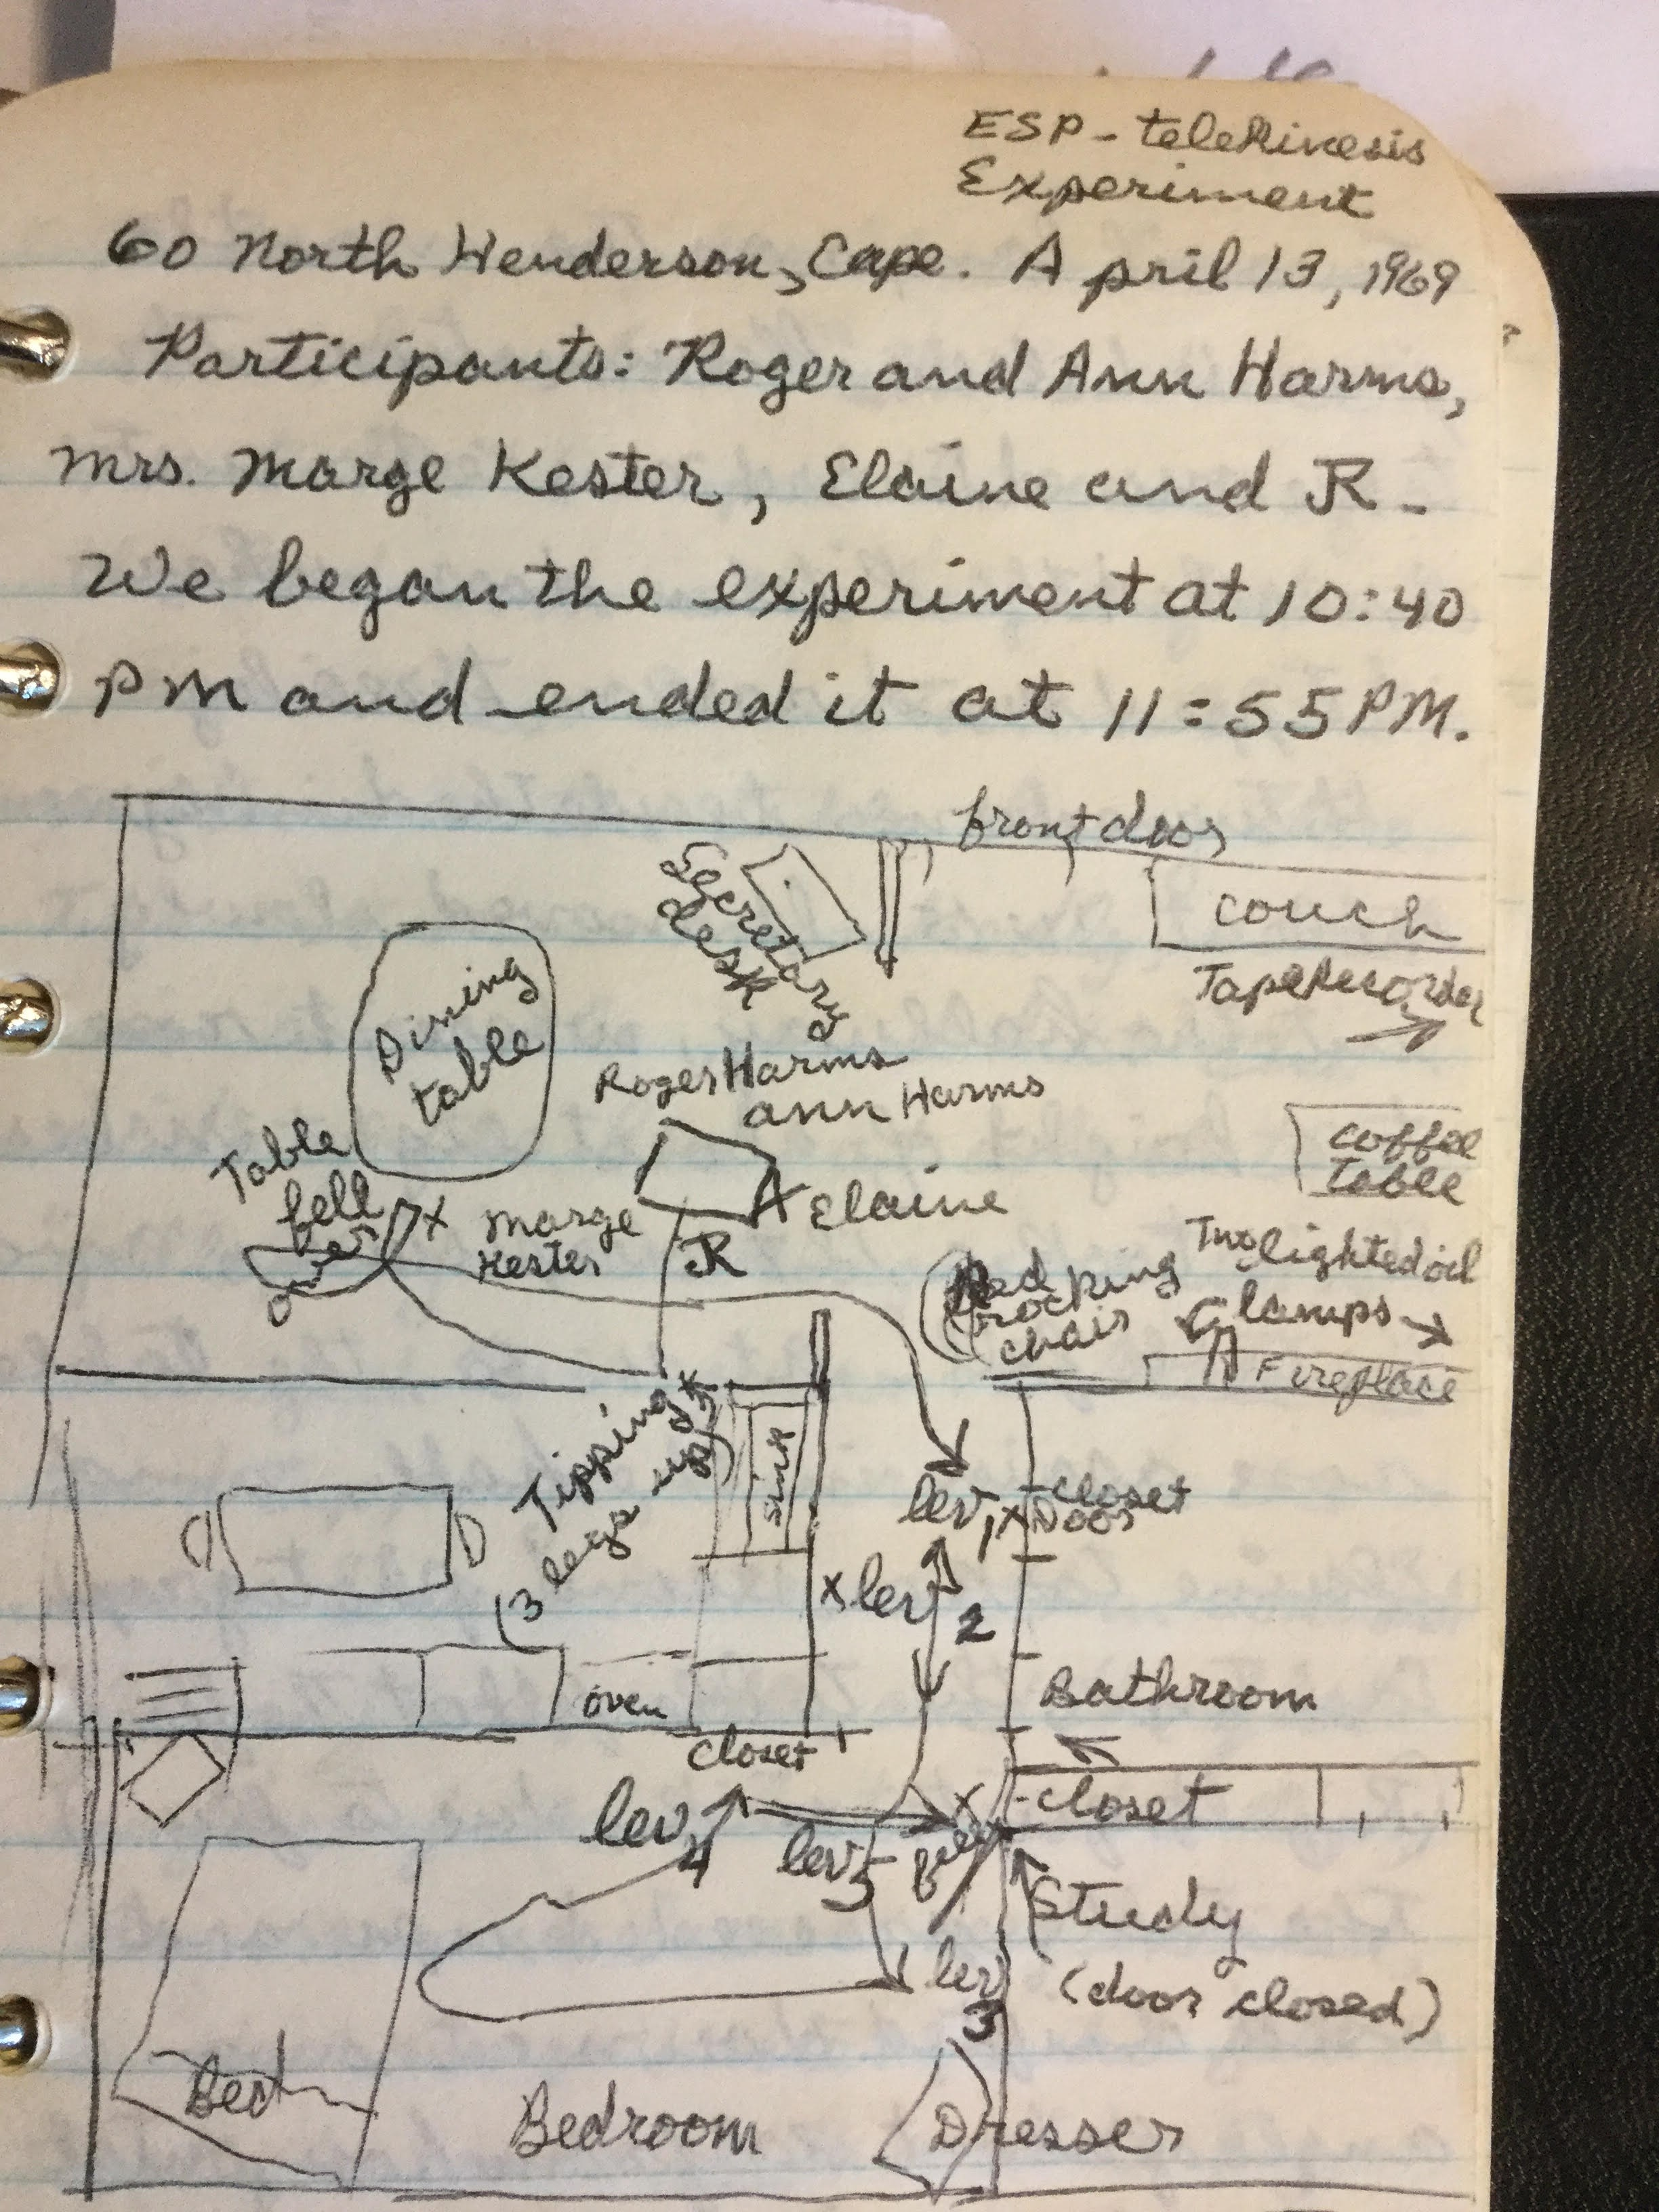 ESP - teleKinesis
Experiment
60 North Henderson, Cape. April 13, 1969
Participants: Roger and Ann Harms,
Mrs. Marge Kester, Elaine and JR -
We began the experiment at 10:40
PM and ended it at 11:55 PM.
front door
Secretary
desk
couch
Tape Recorder
Dining
table
Roger Harms
Ann Harms
coffee
table
Table
fell
over
X
Marge
Kester
JR
Elaine
Red
rocking
chair
Two lighted oil
lamps
Fireplace
Tipping
(3 legs up)
sink
lev 1 X
closet
Door
X lev 2
oven
Bathroom
closet
closet
lev 4
lev 5
X
fell
Study
(door closed)
lev 3
Bed
Bedroom
Dresser